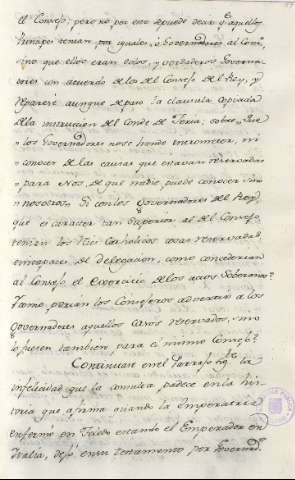 el Consejo; pero no por esto se puede decir q.e aquellos
Principes tenian por iguales, o Governadores al Cons.o,
sino que ellos eran solos, y verdaderos Governa-
dores con acuerdo de los del Consejo del Rey, y
reparese aunque de paso la clausula copiada
de la instruccion del Conde de Feria, sobre, Que
los Governadores no se han de entrometer, ni
conocer de las causas que estavan reservadas
para Nos, de que nadie puede conocer sino
nosotros. Si con los Governadores del Rey,
que es caracter tan superior al del Consejo,
tenian los Reies Catholicos cosas reservadas,
incapaces de delegacion, como concederian
al Consejo el exercicio de los actos Soberanos?
como podian los Consejeros advertir a los
Governadores aquellos casos reservados, sino
lo fuesen tambien para el mismo Consejo?
Continuase en el Parrafo la
infelicidad que la consulta padece en la his-
toria que afirma quando la Emperatriz
enfermò en Toledo estando el Emperador en
Italia, dejò en su testamento por Governad.